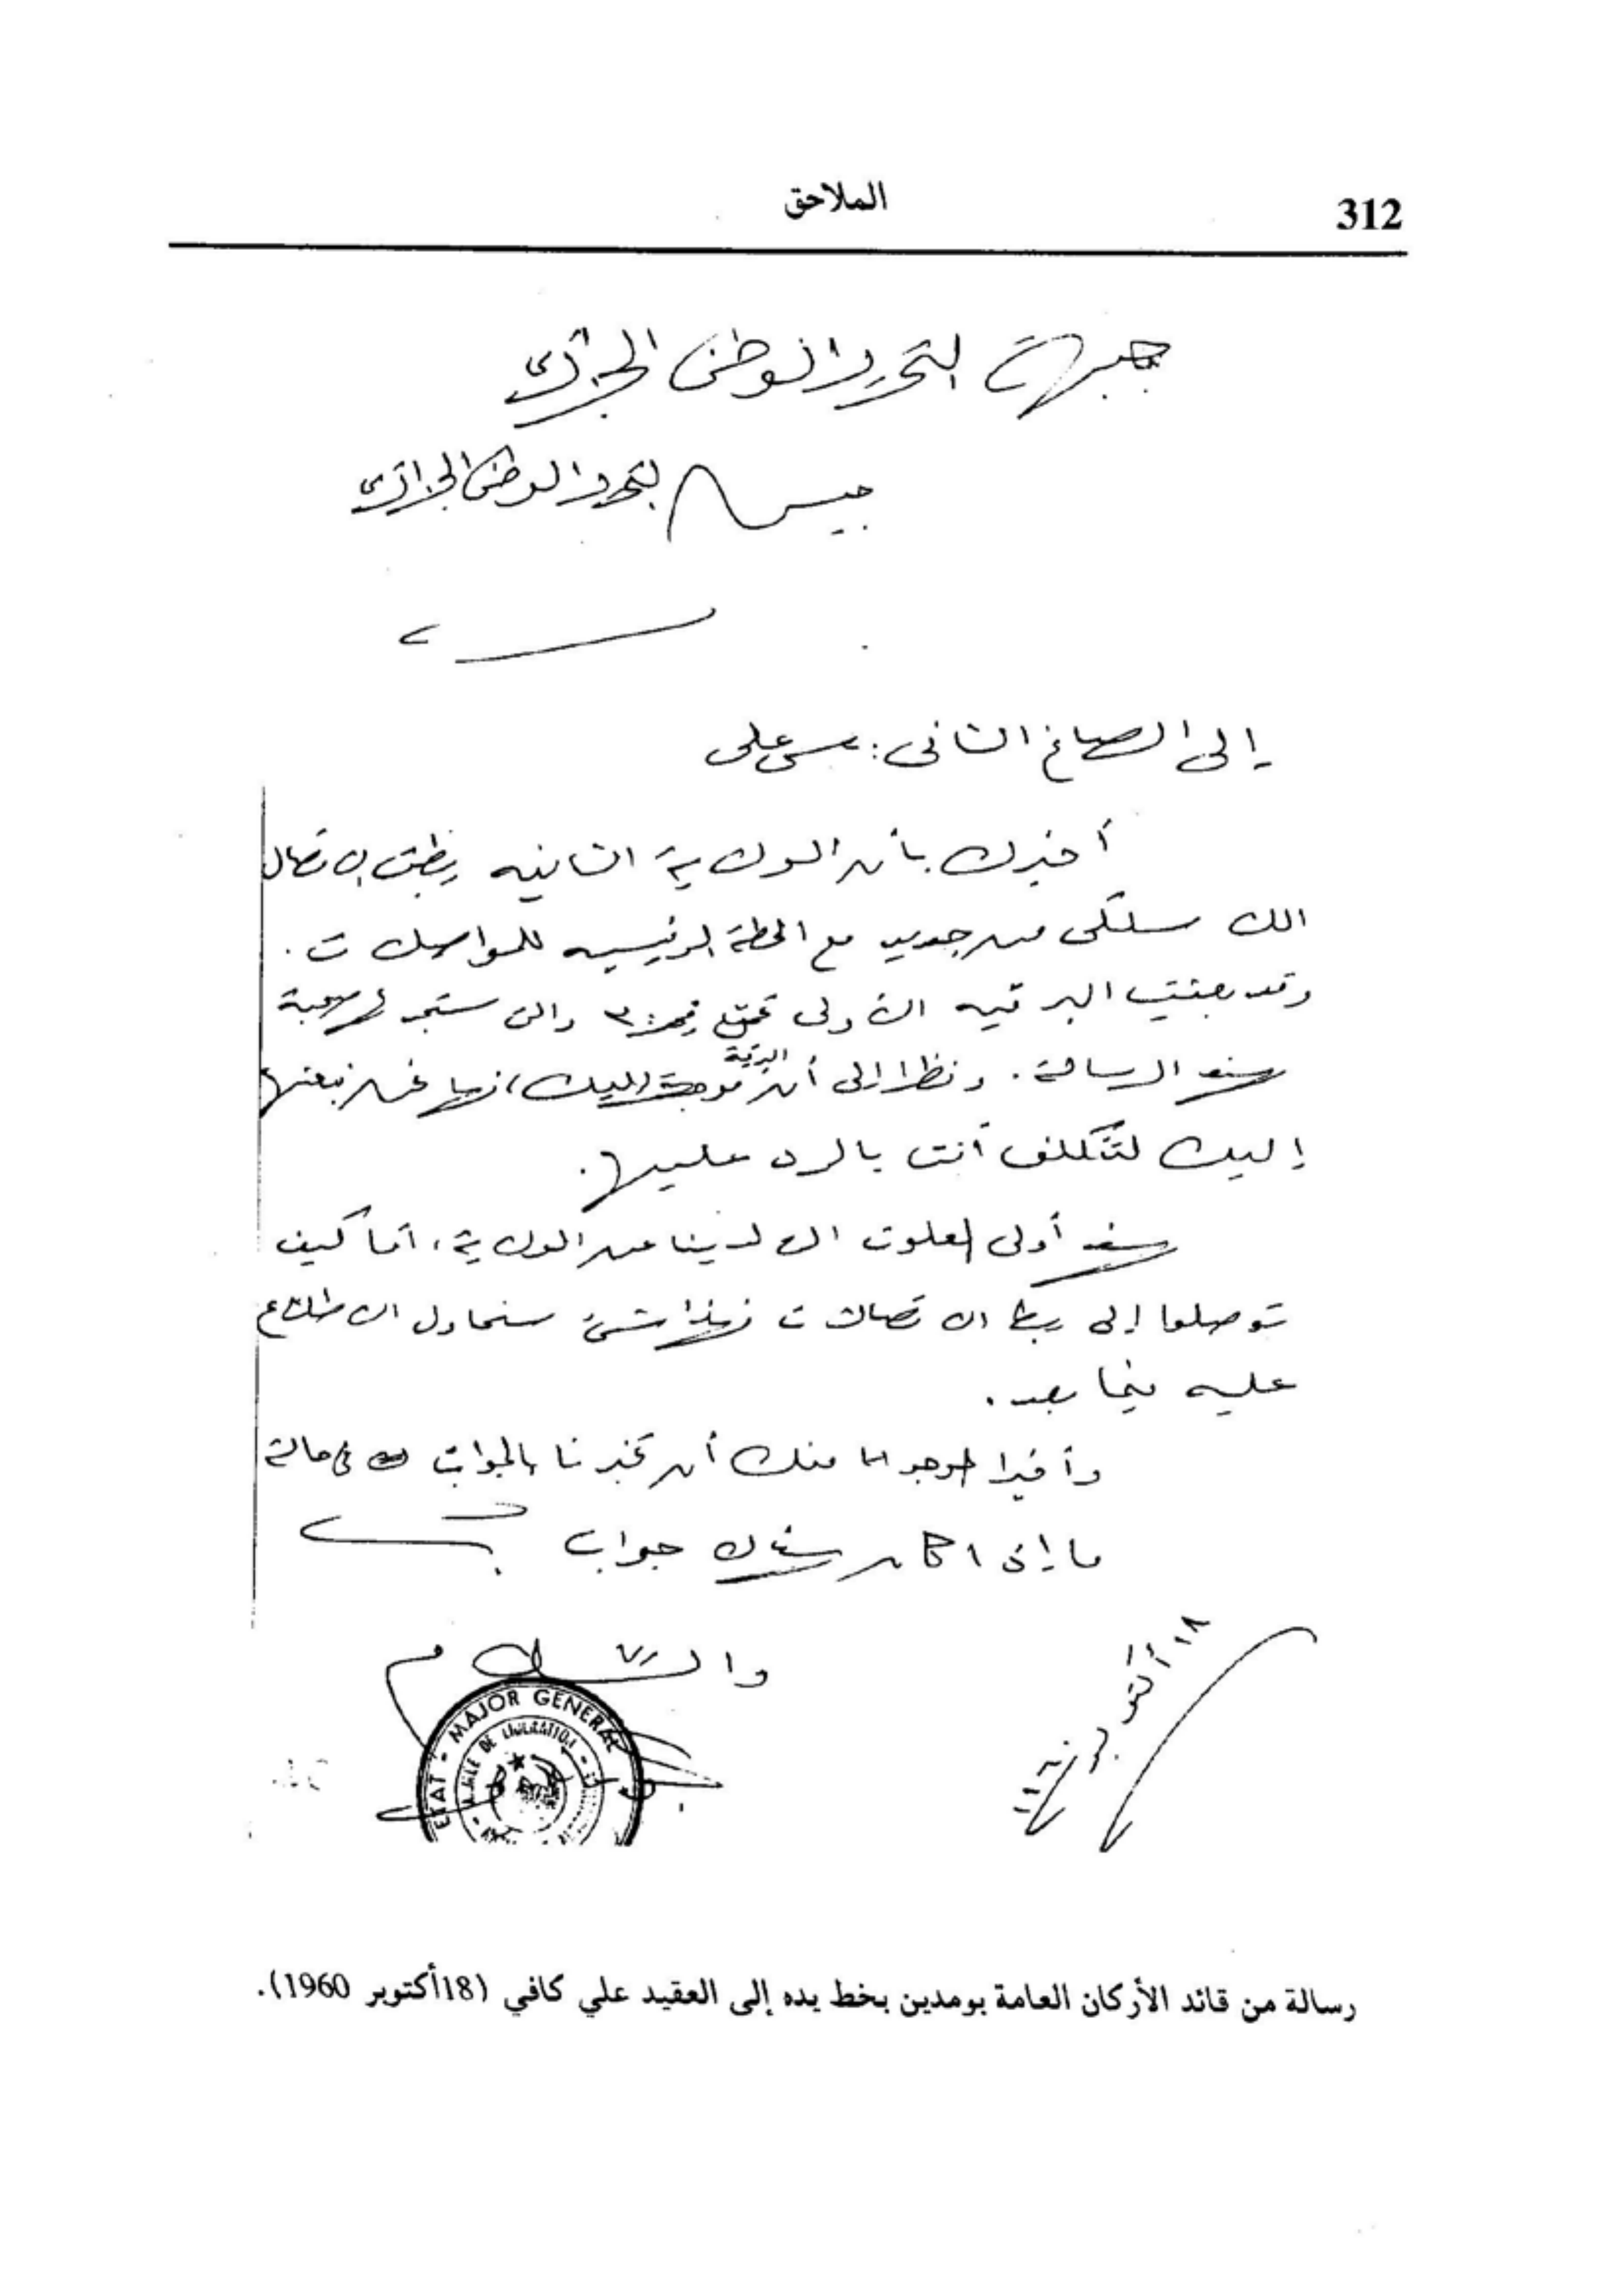 312
الملاحق
جبهة التحرير الوطني الجزائري
جيش التحرير الوطني الجزائري
إلى الصاغ الثاني: سي علي
أخبرك بأن الولاية الثانية ربطت الاتصال
اللاسلكي من جديد مع المحطة الرئيسية للمواصلات.
وقد بعثت البرقية الأولى تحت رقم: ٣ والتي ستجدها صحبة
هذه الرسالة. ونظرا إلى أن البرقية موجهة إليك، فها نحن نبعثها
إليك لتتكلف أنت بالرد عليها.
هذه أولى المعلومات التي لدينا عن الولاية، أما كيف
توصلوا إلى ربط الاتصالات فهذا شيء سنحاول الاطلاع
عليه فيما بعد.
وأخيرا المرجو منك أن تخبرنا بالجواب في حالة
ما إذا كان هناك جواب
والسلام
١٨ أكتوبر
ETAT - MAJOR GENERAL
DE LIBERATION
رسالة من قائد الأركان العامة بومدين بخط يده إلى العقيد علي كافي (18أكتوبر 1960).